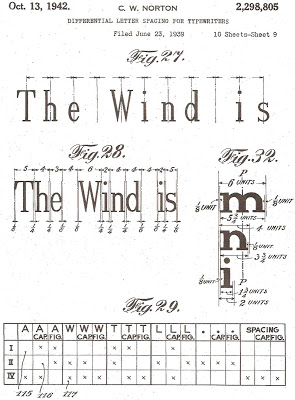 Oct. 13, 1942.
C. W. NORTON
2,298,805
DIFFERENTIAL LETTER SPACING FOR TYPEWRITERS
Filed June 23, 1939
10 Sheets-Sheet 9
Fig. 27.
The Wind is
Fig. 28.
Fig. 32.
The Wind is
P
6 UNITS
m
1/8 UNIT
1/8 UNIT
5 3/4 UNITS
n
4 UNITS
1/8 UNIT
3 3/4 UNITS
P
i
1/8 UNIT
1 3/4 UNITS
2 UNITS
Fig. 29.
A A A W W W T T T L L L . . . SPACING
CAP. FIG. CAP. FIG. CAP. FIG. CAP. FIG. CAP. FIG. CAP. FIG.
I x x x x
II x x x x x x
IV x x x x x x x
115 116 117